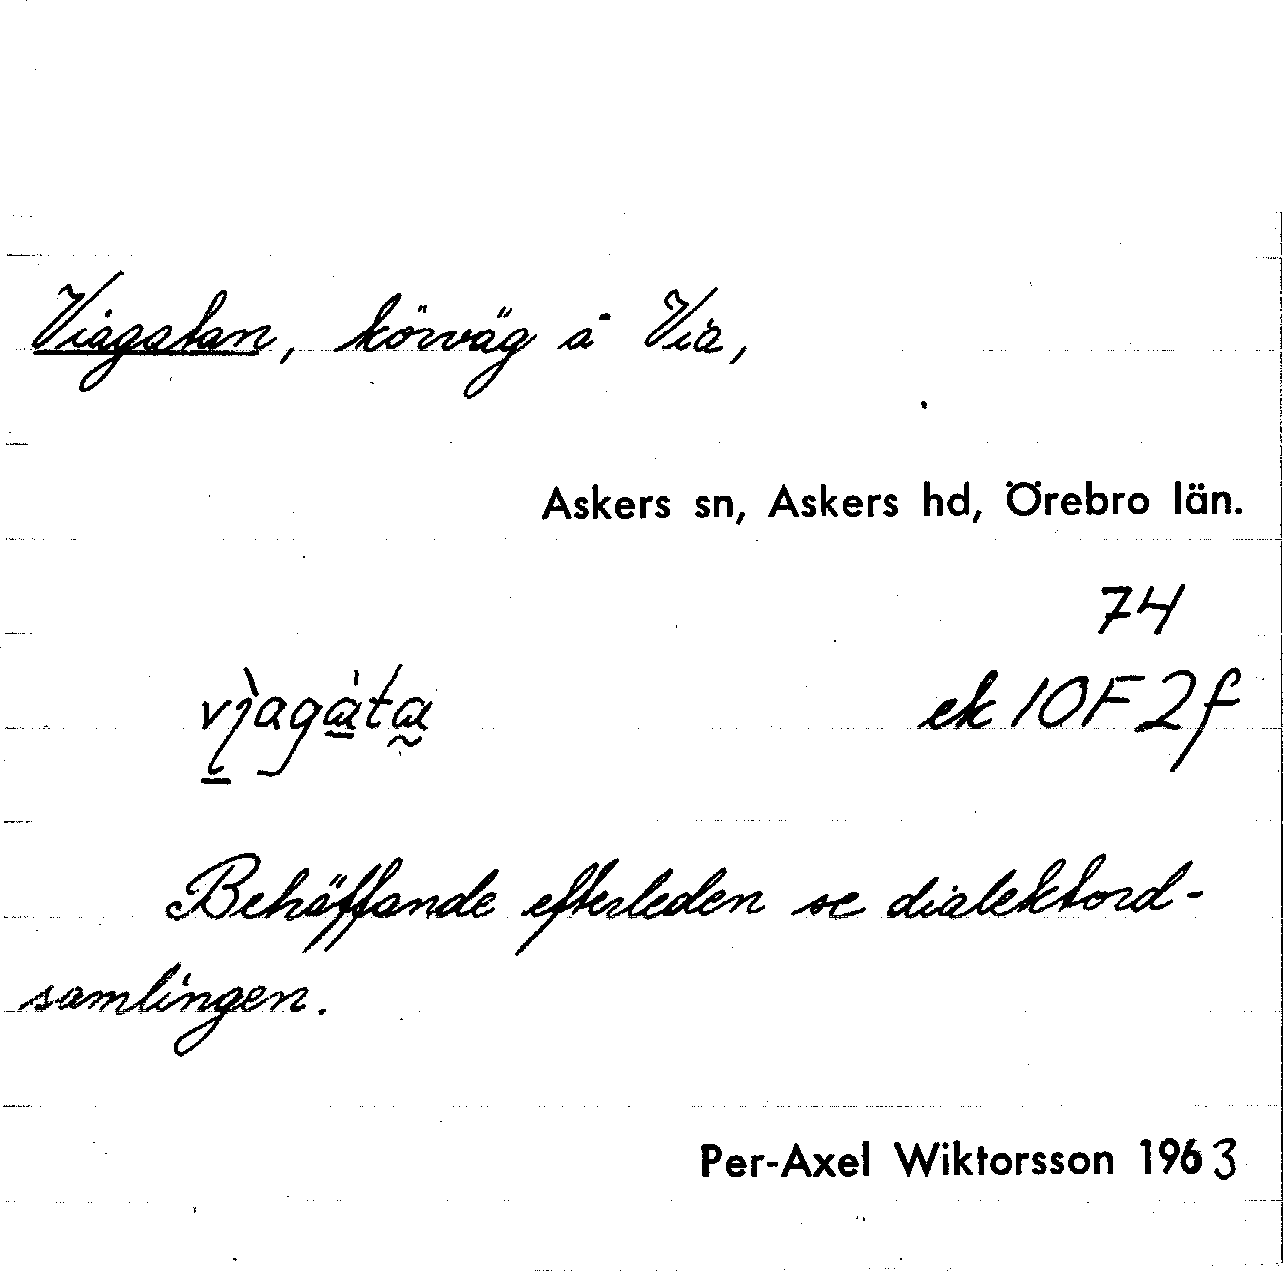 Viagatan, körväg å Via,
Askers sn, Askers hd, Örebro län.
74
ek 10F 2f
Behäffande efterleden se dialektord-
samlingen.
Per-Axel Wiktorsson 1963